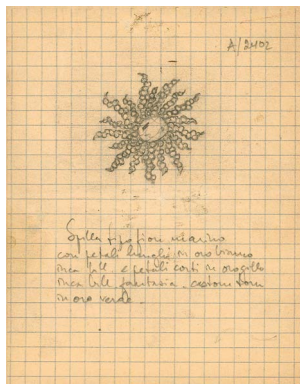 A/2402
Spilla tipo fiore marino
con petali lunghi in oro bianco
inca brill. e petali corti in oro giallo
inca brill. fantasia. castoni
in oro verde.